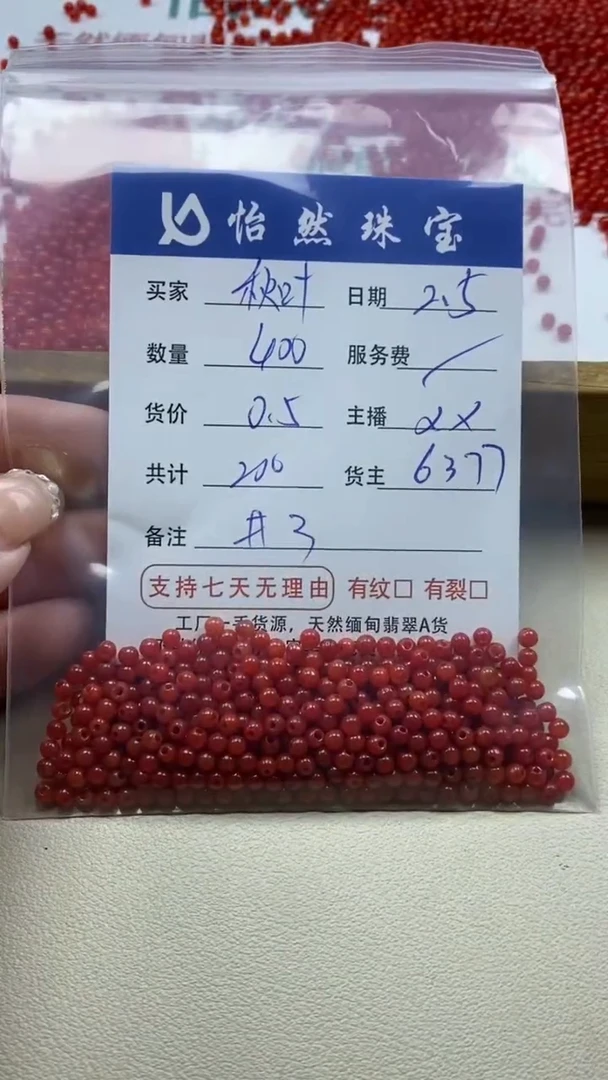 怡然珠宝
买家 秋叶 日期 2.5
数量 400 服务费 /
货价 0.5 主播 2X
共计 200 货主 6377
备注 #3
支持七天无理由 有纹□ 有裂□
工厂一手货源，天然缅甸翡翠A货